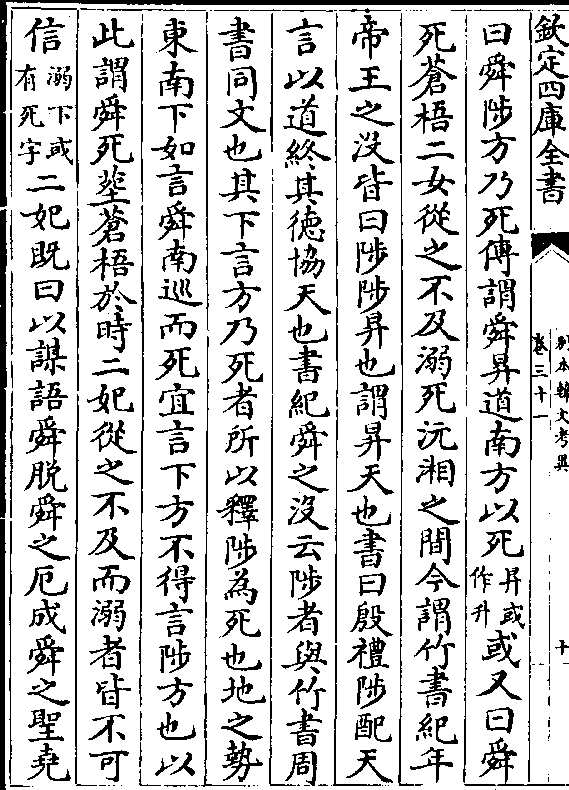 欽定四庫全書
別本韓文考異
卷三十一
十
曰舜陟方乃死傳謂舜昇道南方以死昇或作升或又曰舜
死蒼梧二女從之不及溺死沅湘之間今謂竹書紀年
帝王之沒皆曰陟陟昇也謂昇天也書曰殷禮陟配天
言以道終其徳協天也書紀舜之沒云陟者與竹書周
書同文也其下言方乃死者所以釋陟為死也地之勢
東南下如言舜南巡而死宜言下方不得言陟方也以
此謂舜死塟蒼梧於時二妃從之不及而溺者皆不可
信溺下或有死字二妃既曰以謀語舜脫舜之厄成舜之聖堯